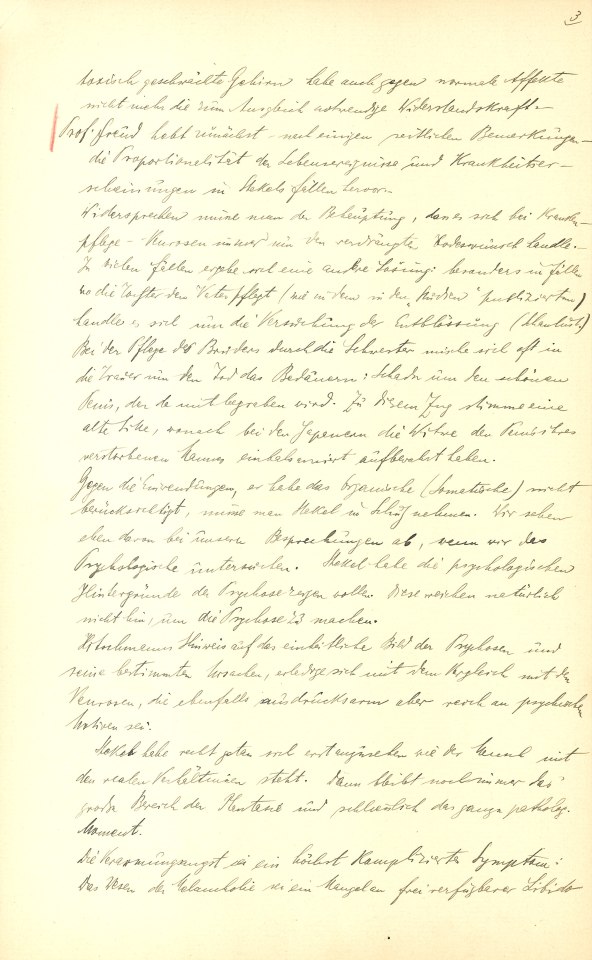 3
toxisch geschwächte Gehirn habe auch gegen normale Affekte
nicht mehr die zum Ausgleich notwendige Widerstandskraft.
Prof. Freud hebt zunächst – mit einigen seitlichen Bemerkungen –
die Proportionalität der Lebensereignisse und Krankheitser-
scheinungen in Stekels Fällen hervor.
Widersprechen müsse man der Behauptung, dass es sich bei Kranken-
pflege-Neurosen immer um den verdrängten Todeswunsch handle.
In vielen Fällen ergebe sich eine andre Lösung: besonders in Fällen
wo die Tochter den Vater pflegt (wie in dem in den „Studien" publizierten)
handle es sich um die Versuchung der Entblössung (Schaulust.)
Bei der Pflege des Bruders durch die Schwester mische sich oft in
die Trauer um den Tod das Bedauern: Schade um den schönen
Penis, der da mit begraben wird. Zu diesem Zug stimme eine
alte Sitte, wonach bei den Japanern die Witwe den Penis ihres
verstorbenen Mannes einbalsamiert aufbewahrt haben.
Gegen die Einwendungen, er habe das Organische (Somatische) nicht
berücksichtigt, müsse man Stekel in Schutz nehmen. Wir sehen
eben davon bei unseren Besprechungen ab, wenn wir das
Psychologische untersuchen. Stekel habe die psychologischen
Hintergründe der Psychose zeigen wollen. Diese reichen natürlich
nicht hin, um die Psychose zu machen.
Hitschmanns Hinweis auf das einheitliche Bild der Psychosen und
seine bestimmten Ursachen, erledige sich mit dem Vergleich mit den
Neurosen, die ebenfalls ausdrucksarm aber reich an psychischen
Motiven sei.
Stekel habe recht getan sich erst anzusehen wie der Mensch mit
den realen Verhältnissen steht. Dann bleibt noch immer das
grosse Bereich der Phantasie und schliesslich das ganze patholog.
Moment.
Die Verarmungsangst sei ein höchst kompliziertes Symptom:
Das Wesen der Melancholie sei ein Mangel an frei verfügbarer Libido